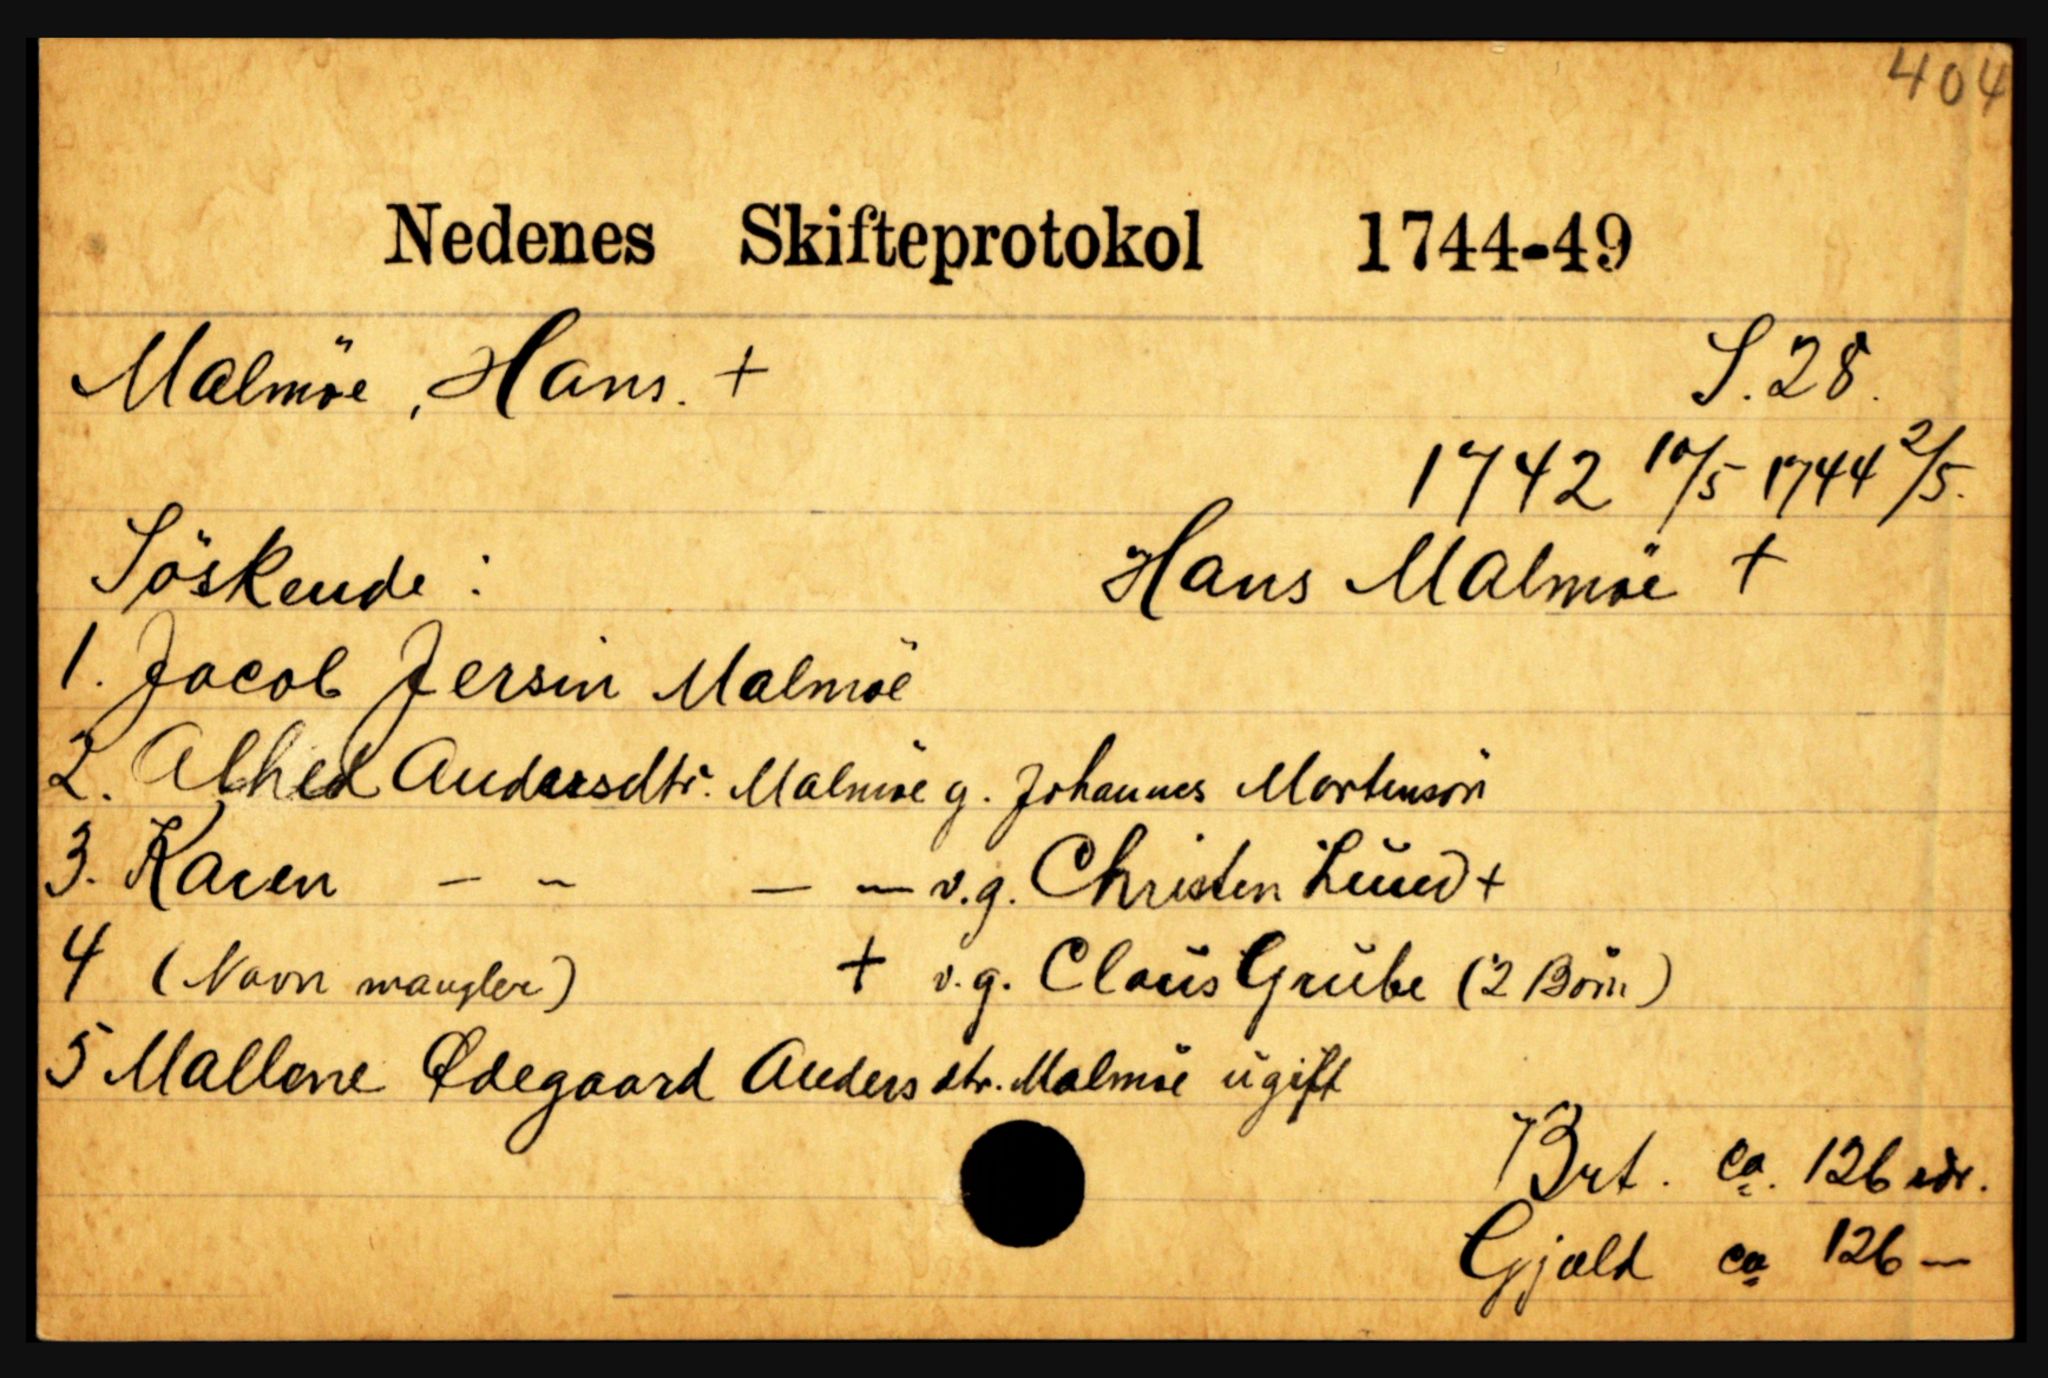 404
Nedenes Skifteprotokol 1744-49
Malmöe, Hans. + S. 28.
1742 10/5 1744 2/5.
Söskende : Hans Malmöe +
1. Jacob Jersin Malmöe
2. Alhed Andersdtr. Malmöe g. Johannes Mortensön
3. Karen — — — — v.g. Christen Lund +
4 (Navn mangler) + v.g. Claus Grube (2 Börn)
5 Mallene Ødegaard Andersdtr. Malmöe ugift
Brt. ca. 126 rdr.
Gjæld ca 126 —